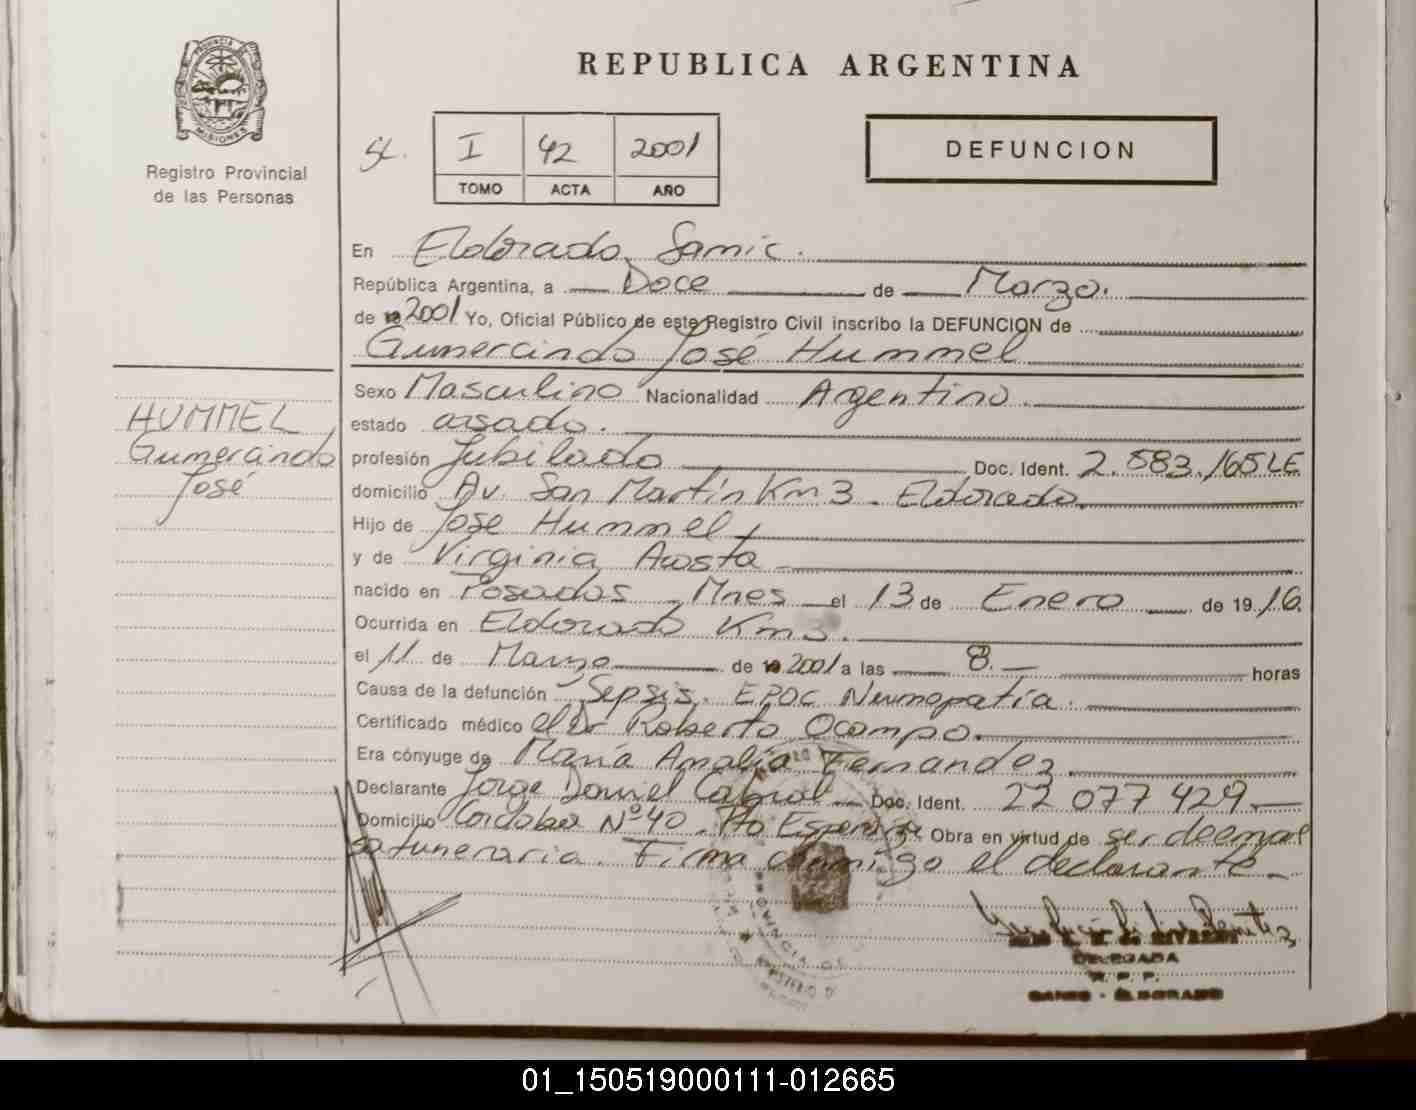 PROVINCIA DE
MISIONES
Registro Provincial
de las Personas
REPUBLICA ARGENTINA
I 42 2001
TOMO ACTA AÑO
DEFUNCION
En Eldorado, Samic.
República Argentina, a Doce de Marzo.
de 2001 Yo, Oficial Público de este Registro Civil inscribo la DEFUNCION de
Gumercindo José Hummel
HUMMEL,
Gumercindo
José
Sexo Masculino Nacionalidad Argentino.
estado casado.
profesión Jubilado Doc. Ident. 2.583.165 LE
domicilio Av. San Martín Km 3. Eldorado.
Hijo de José Hummel
y de Virginia Acosta
nacido en Posadas Mnes el 13 de Enero de 1916.
Ocurrida en Eldorado Km 3.
el 11 de Marzo de 2001 a las 8. horas
Causa de la defunción Sepsis. EPOC Neumopatía.
Certificado médico el Dr Roberto Ocampo.
Era cónyuge de María Amalia Fernandez.
Declarante Jorge Daniel Cabral Doc. Ident. 22 077 429.
Domicilio Cordoba Nº 40. Pto Esperanza Obra en virtud de ser de empre
sa funeraria. Firma conmigo el declarante
PROVINCIA DE
MINISTERIO D
DELEGADA
R. P. P.
SAMIC - ELDORADO
01_150519000111-012665